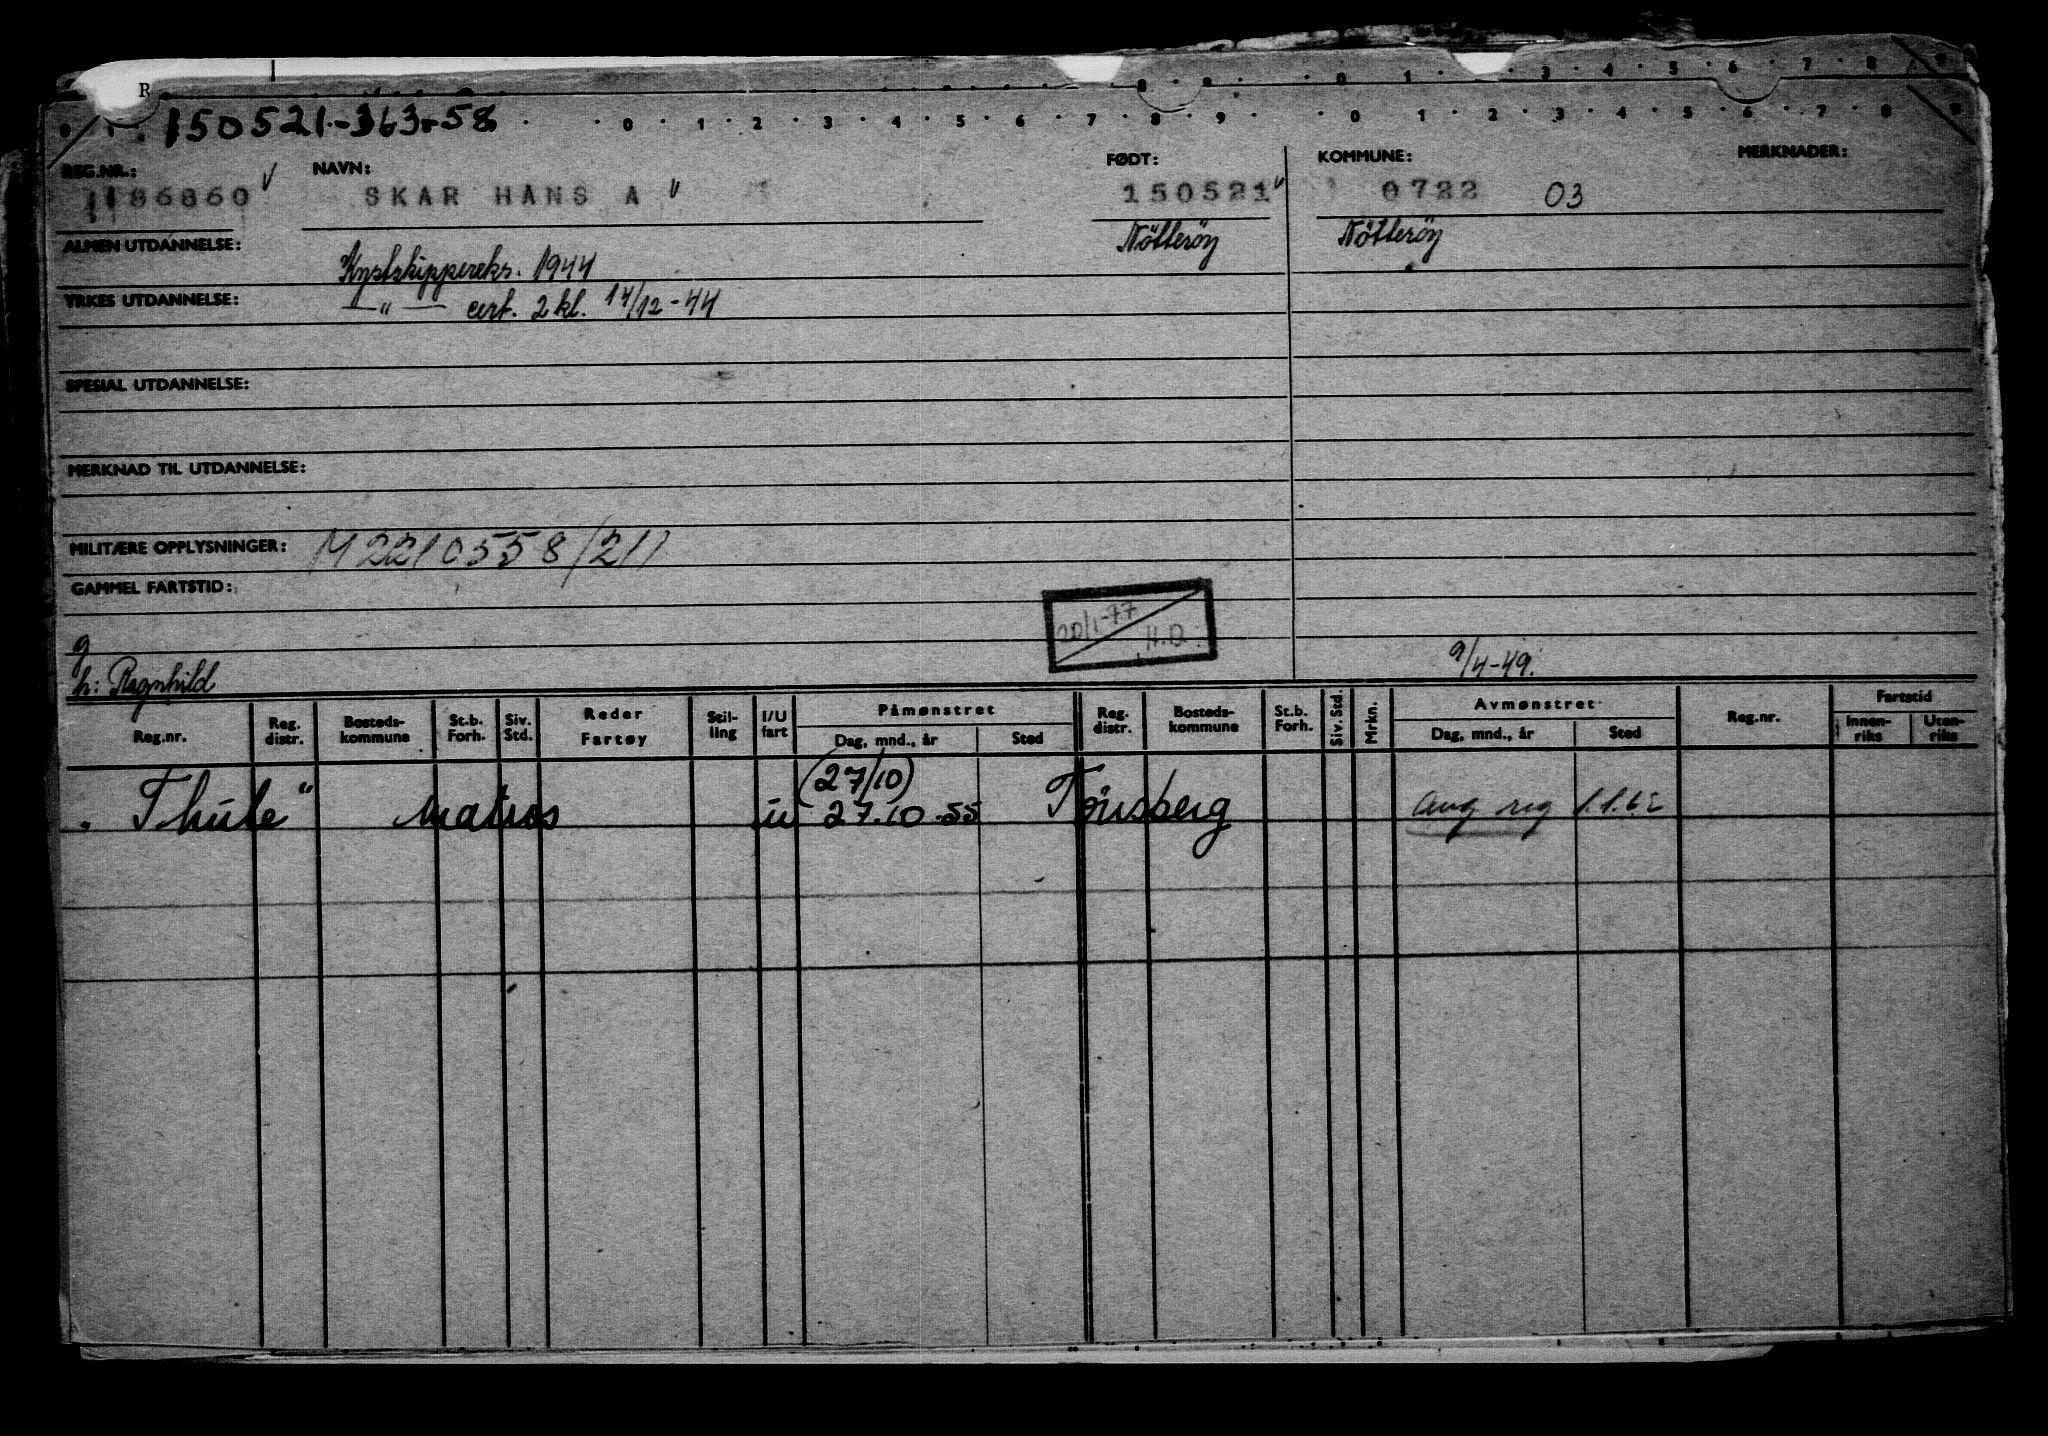 R
8 . 9 . . 0 . 1 . . 3 . 4 . 5 . 6 . 7 . 8 . 9
150521-363-58
0 . 1 . 2 . 3 . 4 . 5 . 6 . 7 . 8 . 9 . . 0 . 1 . 2 . 3 . 4 . 5 . 6 . 7 . 8 . 9
REG.NR.: NAVN: FØDT: KOMMUNE: MERKNADER:
1186860 SKAR HANS A 150521 0722 03
ALMEN UTDANNELSE: Nötteröy Nötteröy
Kystskippereks. 1944
YRKES UTDANNELSE: —„— cert. 2 kl. 14/12-44
SPESIAL UTDANNELSE:
MERKNAD TIL UTDANNELSE:
MILITÆRE OPPLYSNINGER: M2210558/21)
GAMMEL FARTSTID:
20/1-77 H.O.
g 9/4-49.
h: Ragnhild
Reg.nr. Reg. distr. Bosteds-kommune St.b. Forh. Siv. Std. Reder Fartøy Stil-ling I/U fart Påmønstret Dag, mnd., år Sted Reg. distr. Bosteds-kommune St.b. Forh. Siv. Std. Mrkn. Avmønstret Dag, mnd., år Sted Reg.nr. Fartstid Innen-riks Uten-riks
(27/10)
"Thule" Matros u 27.10.55 Tønsberg avg reg 1.1.62